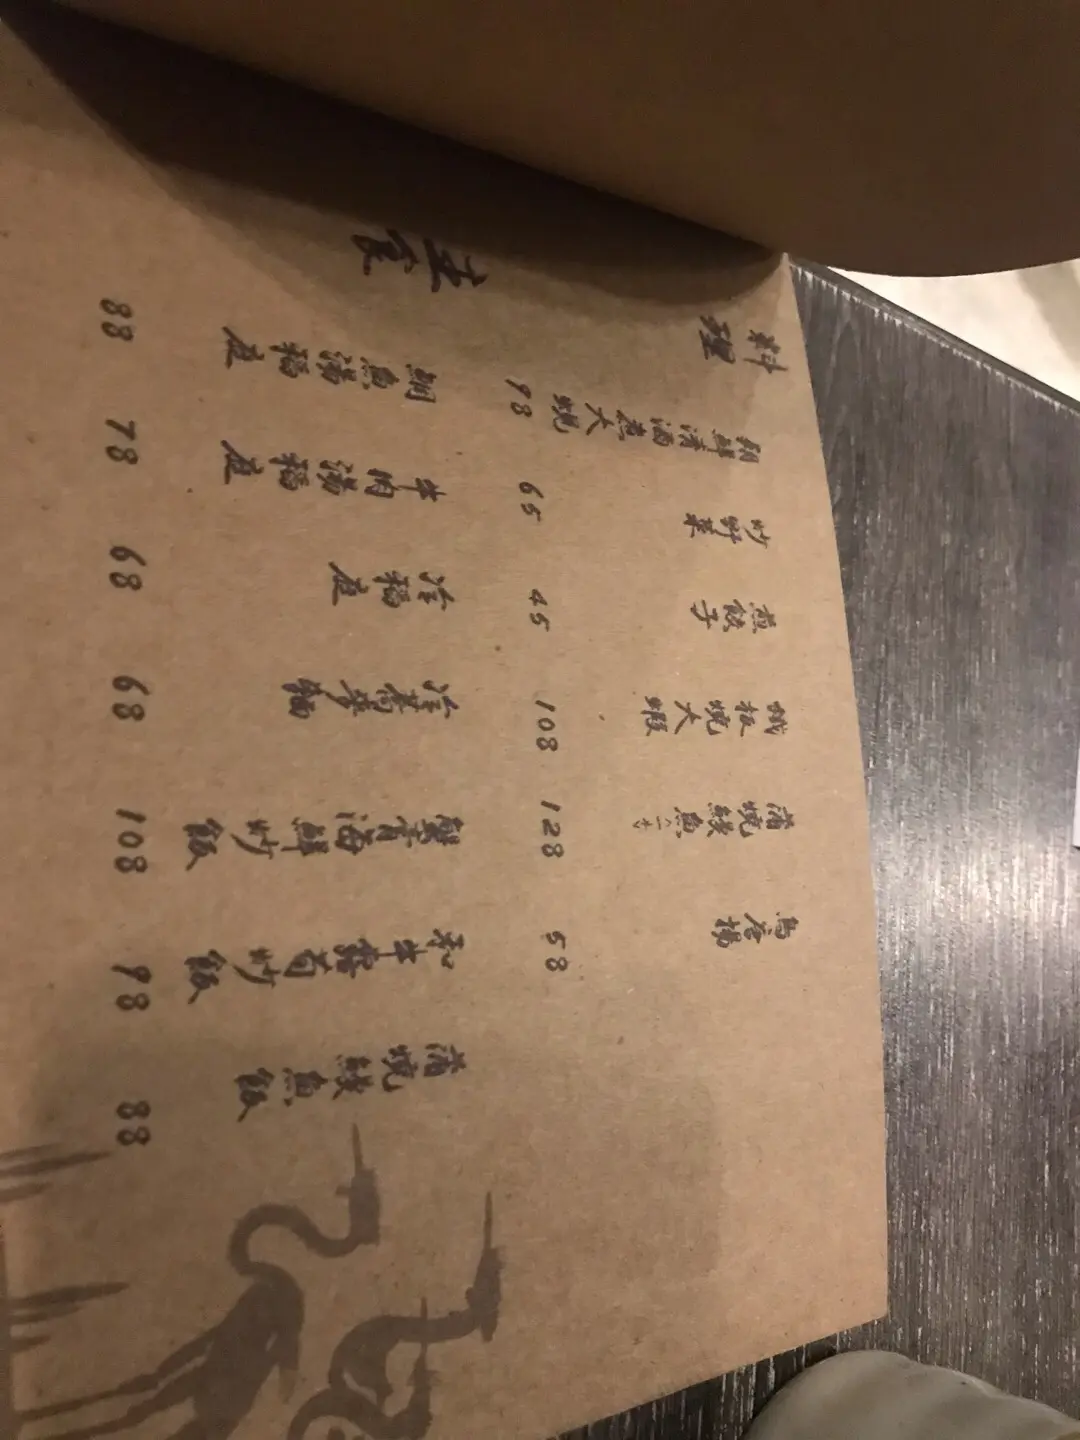 料理
鮮清酒煮大蜆
98
炒野菜
65
煎餃子
45
鐵板燒大蝦
108
蒲燒鰻魚
128
揚
58
主食
鯛魚湯稻庭
88
牛肉湯稻庭
78
冷稻庭
68
冷蕎麥麵
68
蟹膏海鮮炒飯
108
和牛露筍炒飯
98
蒲燒鰻魚飯
88